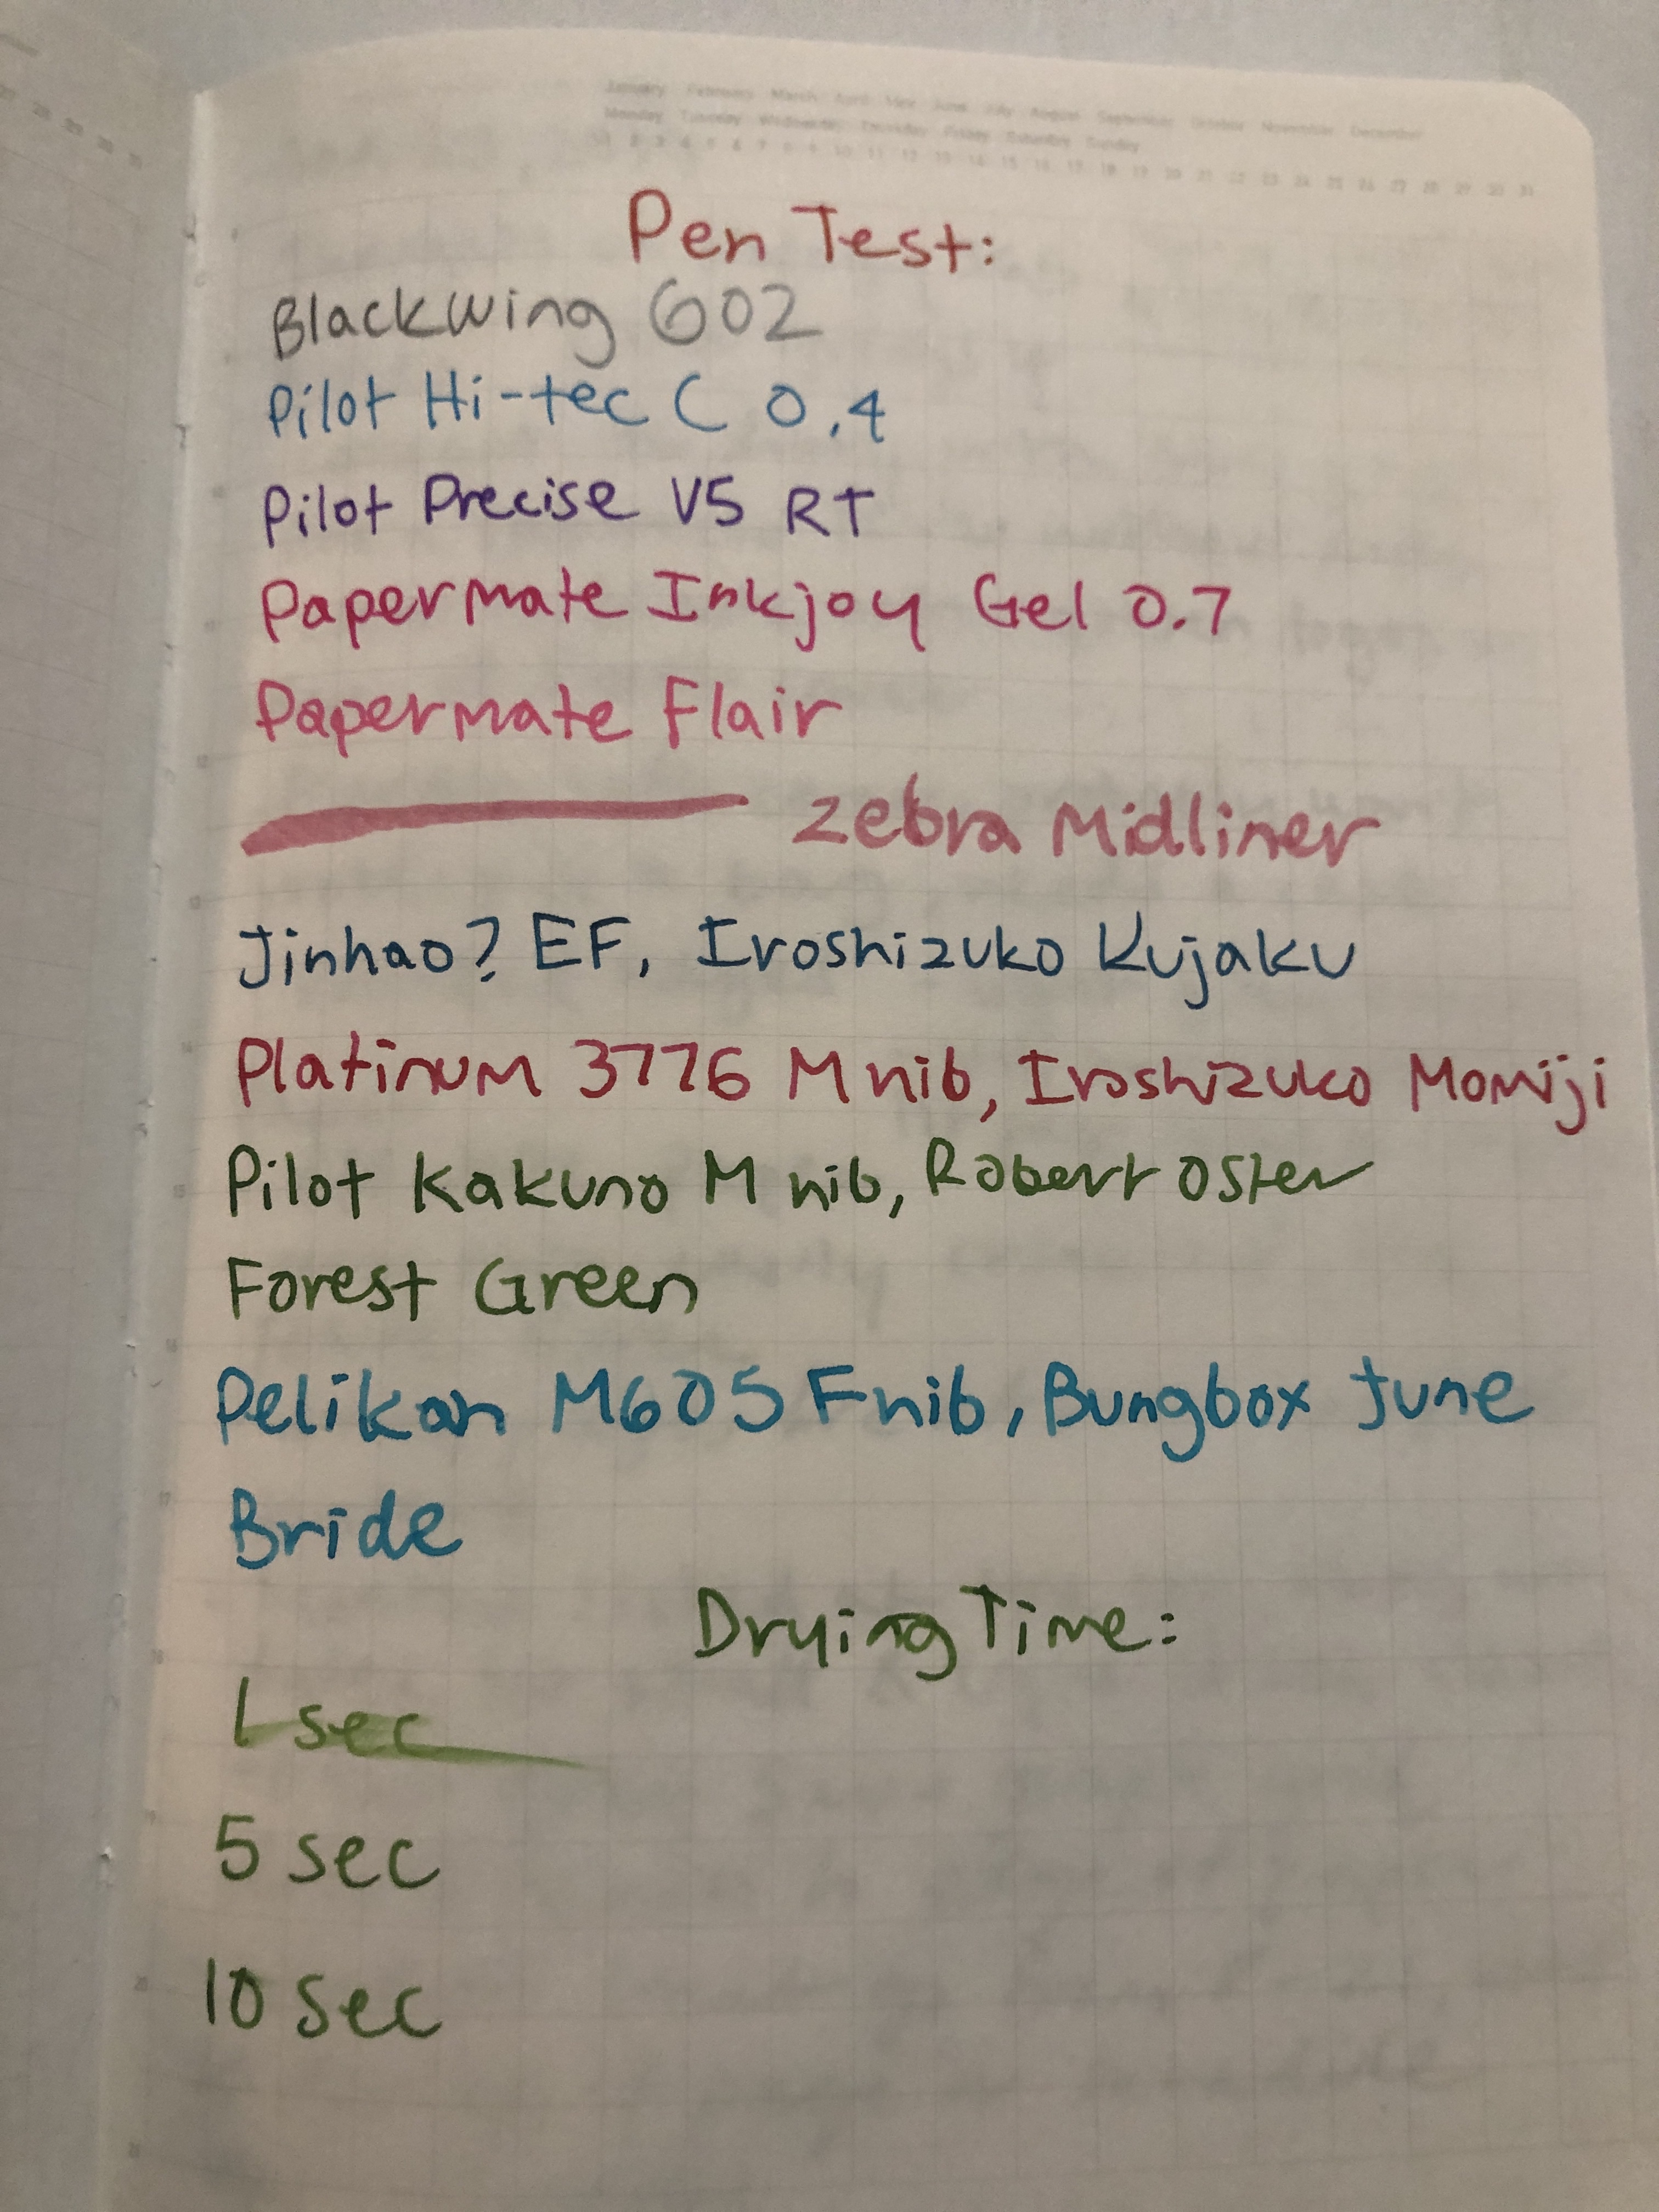 January February March April May June July August September October November December
Monday Tuesday Wednesday Thursday Friday Saturday Sunday
1 2 3 4 5 6 7 8 9 10 11 12 13 14 15 16 17 18 19 20 21 22 23 24 25 26 27 28 29 30 31
Pen Test:
Blackwing 602
Pilot Hi-tec C 0.4
Pilot Precise V5 RT
Papermate Inkjoy Gel 0.7
Papermate Flair
Zebra Midliner
Jinhao? EF, Iroshizuko Kujaku
Platinum 3776 M nib, Iroshizuko Momiji
Pilot Kakuno M nib, Robert Oster
Forest Green
Pelikan M605 F nib, Bungbox June
Bride
Drying Time:
1 sec
5 sec
10 sec